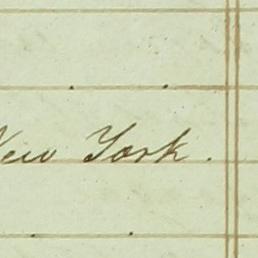 New York.